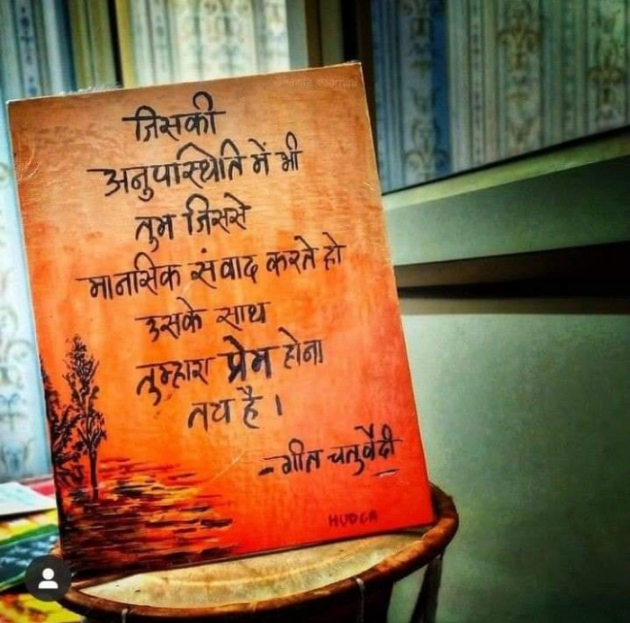 जिसकी
अनुपस्थिति में भी
तुम जिससे
मानसिक संवाद करते हो
उसके साथ
तुम्हारा प्रेम होना
तय है ।
- गीत चतुर्वेदी
HUDGA